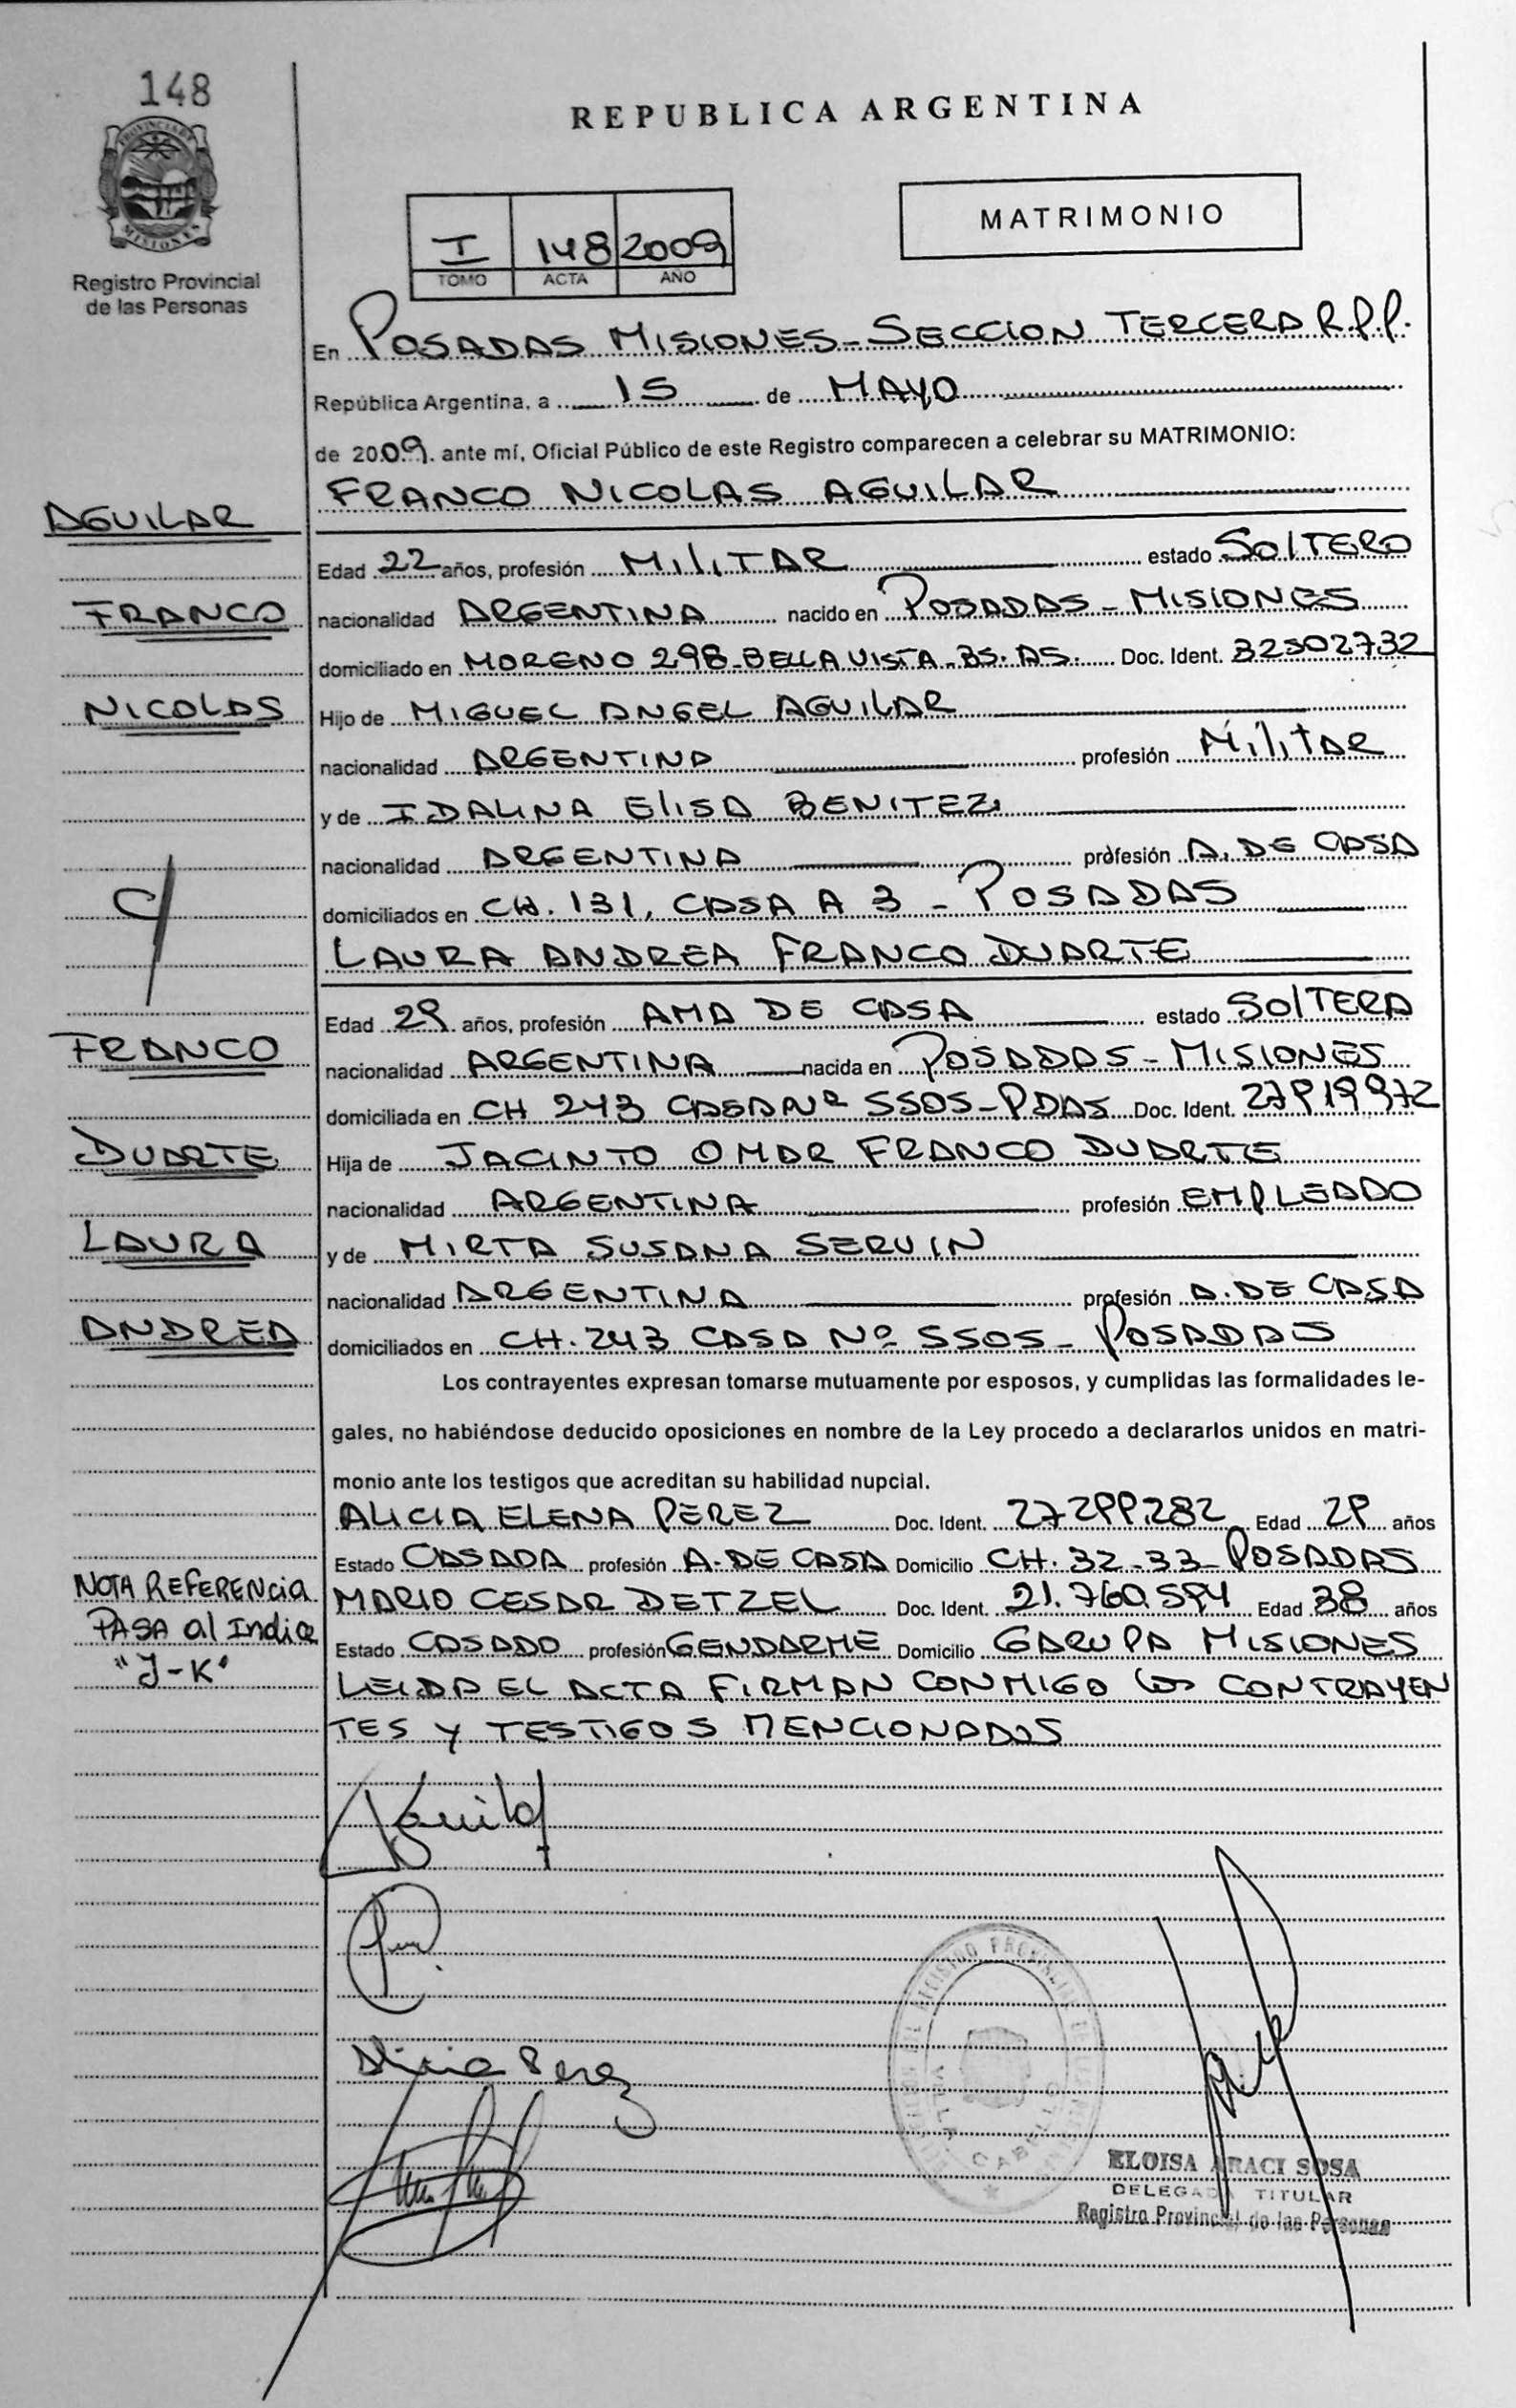 148
PROVINCIA DE
MISIONES
Registro Provincial
de las Personas
REPUBLICA ARGENTINA
MATRIMONIO
I 148 2009
TOMO ACTA AÑO
En POSADAS MISIONES-SECCION TERCERA R.P.P.
República Argentina, a 15 de MAYO
de 2009. ante mí, Oficial Público de este Registro comparecen a celebrar su MATRIMONIO:
FRANCO NICOLAS AGUILAR
AGUILAR
Edad 22 años, profesión MILITAR estado SOLTERO
FRANCO
nacionalidad ARGENTINA nacido en POSADAS - MISIONES
domiciliado en MORENO 298-BELLA VISTA-BS.AS. Doc. Ident. 32502732
NICOLAS
Hijo de MIGUEL ANGEL AGUILAR
nacionalidad ARGENTINA profesión MILITAR
y de IDALINA ELISA BENITEZ
nacionalidad ARGENTINA profesión A. DE CASA
C/
domiciliados en CH. 131, CASA A 3 - POSADAS
LAURA ANDREA FRANCO DUARTE
Edad 29 años, profesión AMA DE CASA estado SOLTERA
FRANCO
nacionalidad ARGENTINA nacida en POSADAS - MISIONES
domiciliada en CH 243 CASA Nº 5505-PDAS Doc. Ident. 27919972
DUARTE
Hija de JACINTO OMAR FRANCO DUARTE
nacionalidad ARGENTINA profesión EMPLEADO
LAURA
y de MIRTA SUSANA SERVIN
nacionalidad ARGENTINA profesión A. DE CASA
ANDREA
domiciliados en CH. 243 CASA Nº 5505- POSADAS
Los contrayentes expresan tomarse mutuamente por esposos, y cumplidas las formalidades le-
gales, no habiéndose deducido oposiciones en nombre de la Ley procedo a declararlos unidos en matri-
monio ante los testigos que acreditan su habilidad nupcial.
ALICIA ELENA PEREZ Doc. Ident. 27.299.282 Edad 29 años
Estado CASADA profesión A. DE CASA Domicilio CH. 32-33- POSADAS
NOTA REFERENCIA
MARIO CESAR DETZEL Doc. Ident. 21.760.594 Edad 38 años
PASA al Indice
Estado CASADO profesión GENDARME Domicilio GARUPA MISIONES
"J-K"
LEIDA EL ACTA FIRMAN CONMIGO los CONTRAYEN
TES Y TESTIGOS MENCIONADOS
Aguilar
Alicia Perez
REGISTRO PROVINCIAL DE LAS
ELOISA ARACI SOSA
DELEGADA TITULAR
Registro Provincial de las Personas